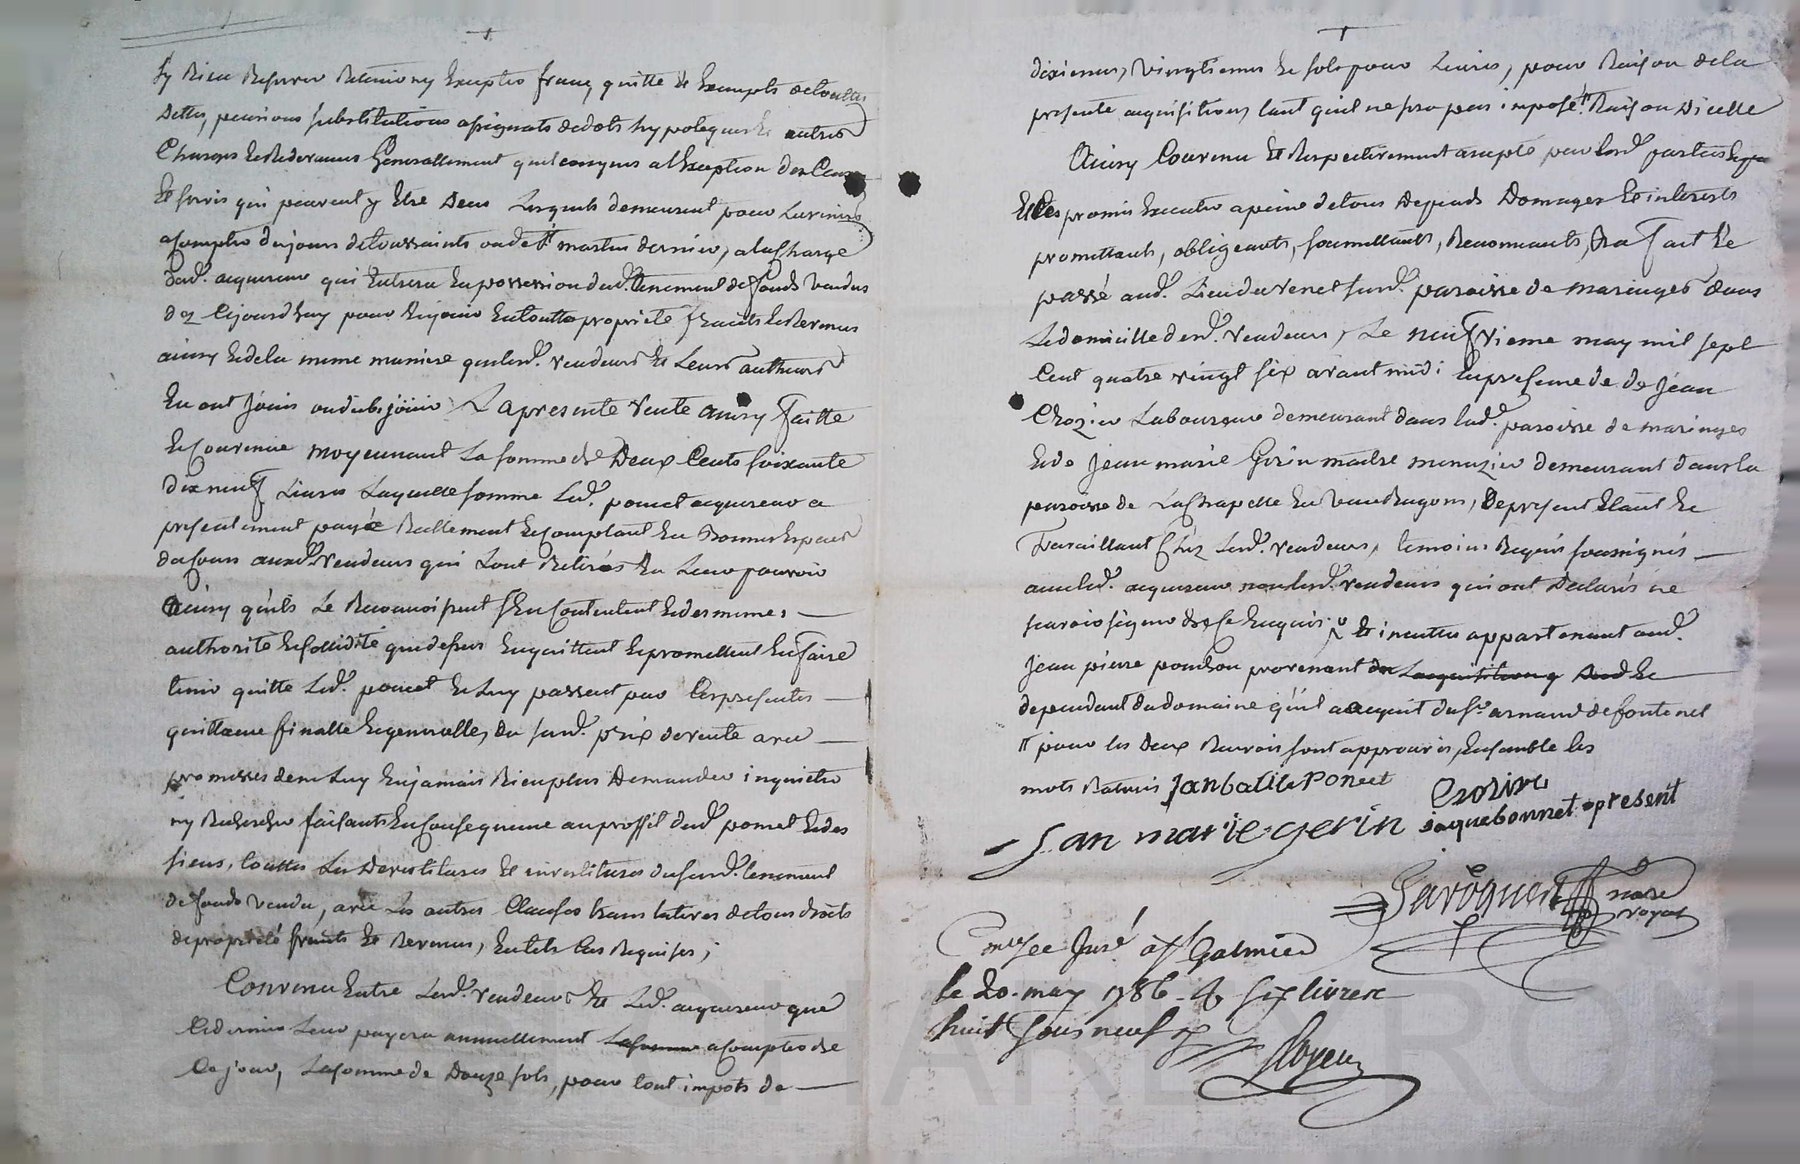 sy Rien Reserver Retenir ny Excepter franq quitte et Exempts de touttes
dettes, pensions substitutions assignats de dots hypoteques et autres
Charges et Redevances Generallement quelconques a l'Exception des Cens
Et servis qui peuvent y Etre Deus Lesquels demeurent pour Lavenir
a compter du jour de toussaints ou de st martin dernier, a la Charge
dud. acquereur qui Entrera En possession dud. tenement de fonds vendus
dez Cejourdhuy pour En jouir En toutte propriété fruits et Revenus
ainsy et de la meme maniere que lesd. vendeurs et Leurs autheurs
En ont joüis ou du bejoüir; La presente vente ainsy faitte
et Convenue moyennant La somme de Deux Cents soixante
dix neuf Livres Laquelle somme Led. poncet acquereur a
presentement payée Reellement et Comptant En Bonnes Especes
du Cours auxd. vendeurs qui Lont Retirés En Leur pouvoir
Ainsy qu'ils Le Reconnoissent s'En Contentent et des memes
authorité et sollidité que dessus En quittent et promettent En faire
tenir quitte Led. poncet et Luy passent par Cespresentes
quittance finalle et generalle, du susd. prix de vente avec
promesses de ne Luy En jamais Rien plus Demander inquieter
ny Rechercher faisants En Consequence au proffit dud. poncet et des
siens, touttes Les Devestitures et investitures du susd. tenement
de fonds vendu, avec Les autres Clauses translatives de tous droits
de propriété fruits et Revenus, En tels Cas Requises;
Convenu Entre Lesd. vendeurs et Led. acquereur que
Cedernier Leur payera annuellement La somme a compter de
Ce jour, La somme de Douze sols, pour tout impots de
dixiemes, vingtiemes et sols pour Livres, pour Raison de la
presente acquisition, tant qu'il ne sera pas imposé à Raison Dicelle
Ainsy Convenu et Respectivement accepté par lesd. parties
Elles promis Executer a peine de tous Depends Domages et interests
promettants, obligeants, soumettants, Renonceants, fait Et
passé aud. Lieu du venet susd. paroisse de maringes dans
Le domicille desd. vendeurs, Le neufvieme may mil sept
Cent quatre vingt six avant midi En presence de de jean
Chozier Laboureur demeurant dans lad. paroisse de maringes
Et de jean marie Gerin maitre menuzier demeurant dans la
paroisse de La Chapelle En vaudragon, De present Etant Et
Travaillant Chez Lesd. vendeurs, temoins Requis soussignés
avec led. acquereur non lesd. vendeurs qui ont Declarés ne
scavoir signer de ce Enquis; et incultes appartenant aud.
jean pierre ponchon provenant de Lacquisition Et
dependant du domaine qu'il a acquit du sr. arnaud de fontenet
pour les Deux Renvois sont approuvés, Ensemble les
mots Raturés Janbatite Poncet Chozier
Jan marie gerin Jaquebonnet present
Gavoquet nore
royal
Conllee Jusé a st Galmier
le 20. may 1786. six livres
huit sous neuf